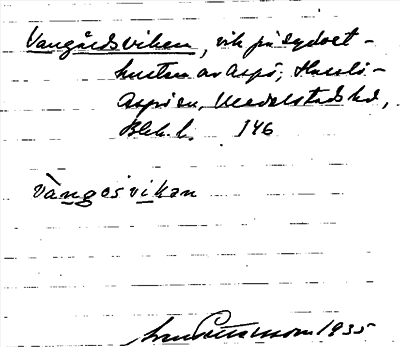 Vangårdsviken, vik på sydost-
kusten av Aspö, Hasslö-
Aspö sn, Medelstads hd,
Blek. l. 146
vàngosvikən
1935